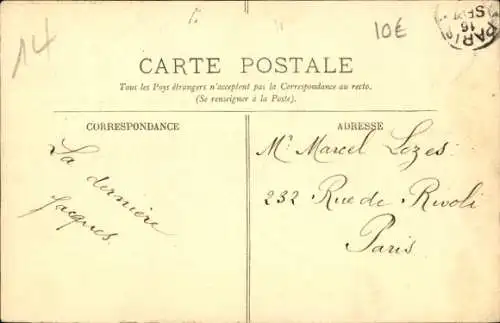 14
10€
PARIS
16
SEPT
CARTE POSTALE
Tous les Pays étrangers n'acceptent pas la Correspondance au recto.
(Se renseigner à la Poste).
CORRESPONDANCE
La dernière
Jacques.
ADRESSE
Mr Marcel Lozes.
232 Rue de Rivoli
Paris